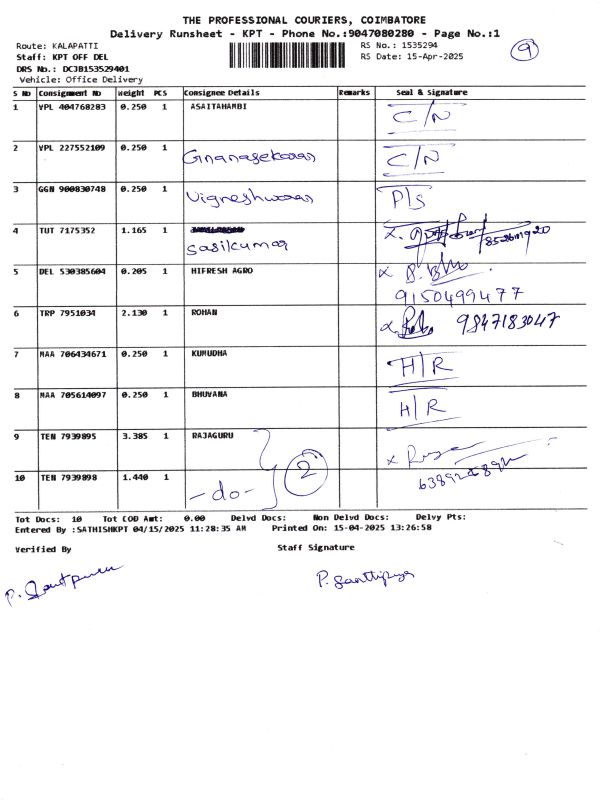 THE PROFESSIONAL COURIERS, COIMBATORE
Delivery Runsheet - KPT - Phone No.:9047080280 - Page No.:1
Route: KALAPATTI RS No.: 1535294 9
Staff: KPT OFF DEL RS Date: 15-Apr-2025
DRS No.: DCJB153529401
Vehicle: Office Delivery
S No Consignment No Weight PCS Consignee Details Remarks Seal & Signature
1 VPL 404768283 0.250 1 ASAITAHAMBI C/N
2 VPL 227552109 0.250 1 Gnanasekaran C/N
3 GGN 900830748 0.250 1 Vigneshwaran P/S
4 TUT 7175352 1.165 1 Sasilkumar
5 DEL 530385604 0.205 1 HIFRESH AGRO
9150499477
6 TRP 7951034 2.130 1 ROHAN 9847183047
7 MAA 706434671 0.250 1 KUMUDHA H/R
8 MAA 705614097 0.250 1 BHUVANA H/R
9 TEN 7939895 3.385 1 RAJAGURU
10 TEN 7939898 1.440 1 -do- 2
Tot Docs: 10 Tot COD Amt: 0.00 Delvd Docs: Non Delvd Docs: Delvy Pts:
Entered By :SATHISHKPT 04/15/2025 11:28:35 AM Printed On: 15-04-2025 13:26:58
Verified By Staff Signature